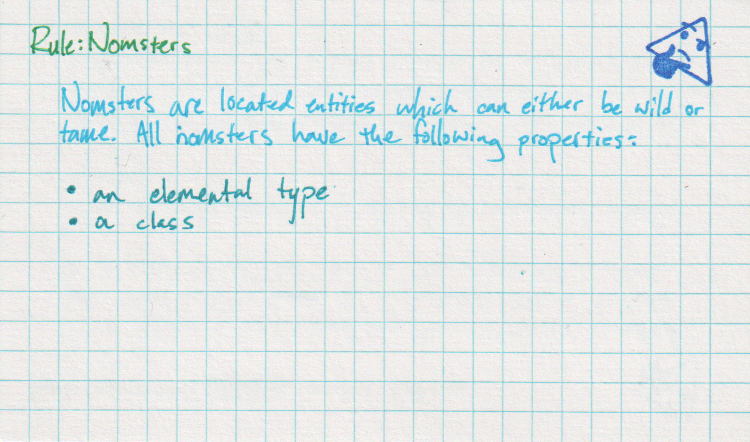 Rule: Nomsters
Nomsters are located entities which can either be wild or
tame. All nomsters have the following properties:
• an elemental type
• a class